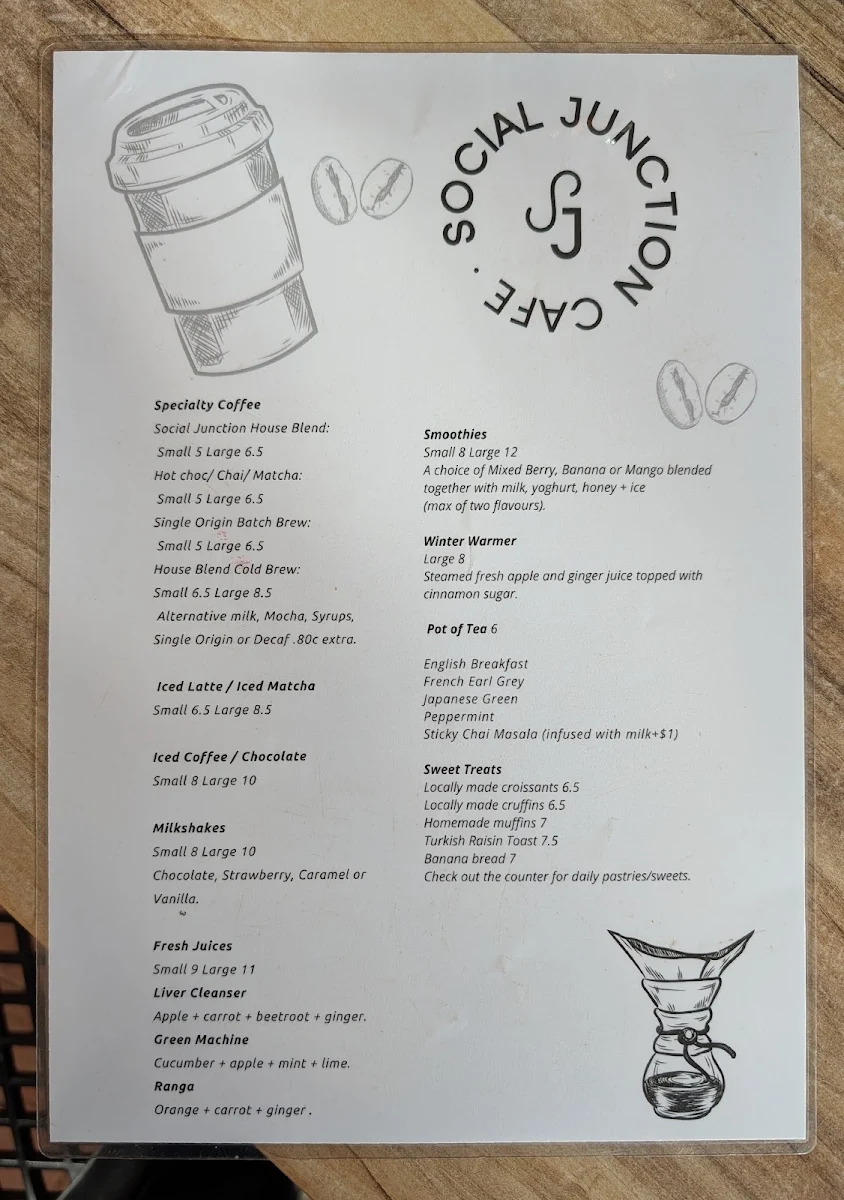 SOCIAL JUNCTION CAFE .
SJ
Specialty Coffee
Social Junction House Blend:
Small 5 Large 6.5
Hot choc/ Chai/ Matcha:
Small 5 Large 6.5
Single Origin Batch Brew:
Small 5 Large 6.5
House Blend Cold Brew:
Small 6.5 Large 8.5
Alternative milk, Mocha, Syrups,
Single Origin or Decaf .80c extra.
Iced Latte / Iced Matcha
Small 6.5 Large 8.5
Iced Coffee / Chocolate
Small 8 Large 10
Milkshakes
Small 8 Large 10
Chocolate, Strawberry, Caramel or
Vanilla.
Fresh Juices
Small 9 Large 11
Liver Cleanser
Apple + carrot + beetroot + ginger.
Green Machine
Cucumber + apple + mint + lime.
Ranga
Orange + carrot + ginger .
Smoothies
Small 8 Large 12
A choice of Mixed Berry, Banana or Mango blended
together with milk, yoghurt, honey + ice
(max of two flavours).
Winter Warmer
Large 8
Steamed fresh apple and ginger juice topped with
cinnamon sugar.
Pot of Tea 6
English Breakfast
French Earl Grey
Japanese Green
Peppermint
Sticky Chai Masala (infused with milk+$1)
Sweet Treats
Locally made croissants 6.5
Locally made cruffins 6.5
Homemade muffins 7
Turkish Raisin Toast 7.5
Banana bread 7
Check out the counter for daily pastries/sweets.